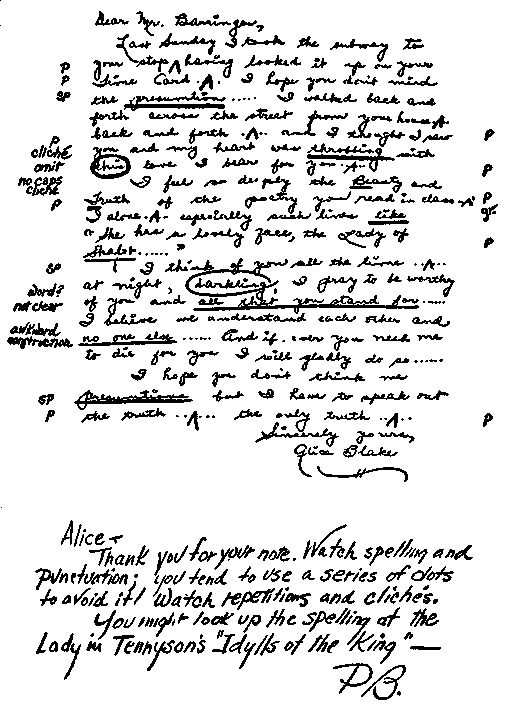 Dear Mr. Barringer,
Last Sunday I took the subway to
P your stop ∧ having looked it up on your
P Time Card .∧. I hope you don't mind
SP the presumtion ..... I walked back and
forth across the street from your house,∧
back and forth .∧.. and I thought I saw P
P you and my heart was throbbing with
cliché
omit this love I bear for you .∧.
no caps I feel so deeply the Beauty and
cliché
P Truth of the poetry you read in class .∧. P
I alone .∧. especially such lines like gr.
"She has a lovely face, the Lady of
Shalot......" P
SP I think of you all the time ..∧..
word? at night, darkling, I pray to be worthy
not clear of you and all that you stand for.....
I believe we understand each other and
awkward
construction no one else...... And if ever you need me
to die for you I will gladly do so......
I hope you don't think me
SP presumtious but I have to speak out
P the truth ..∧... the only truth ..∧.. P
Sincerely yours,
Alice Blake
Alice —
Thank you for your note. Watch spelling and
punctuation; you tend to use a series of dots
to avoid it! Watch repetitions and clichés.
You might look up the spelling of the
Lady in Tennyson's "Idylls of the King" —
P.B.